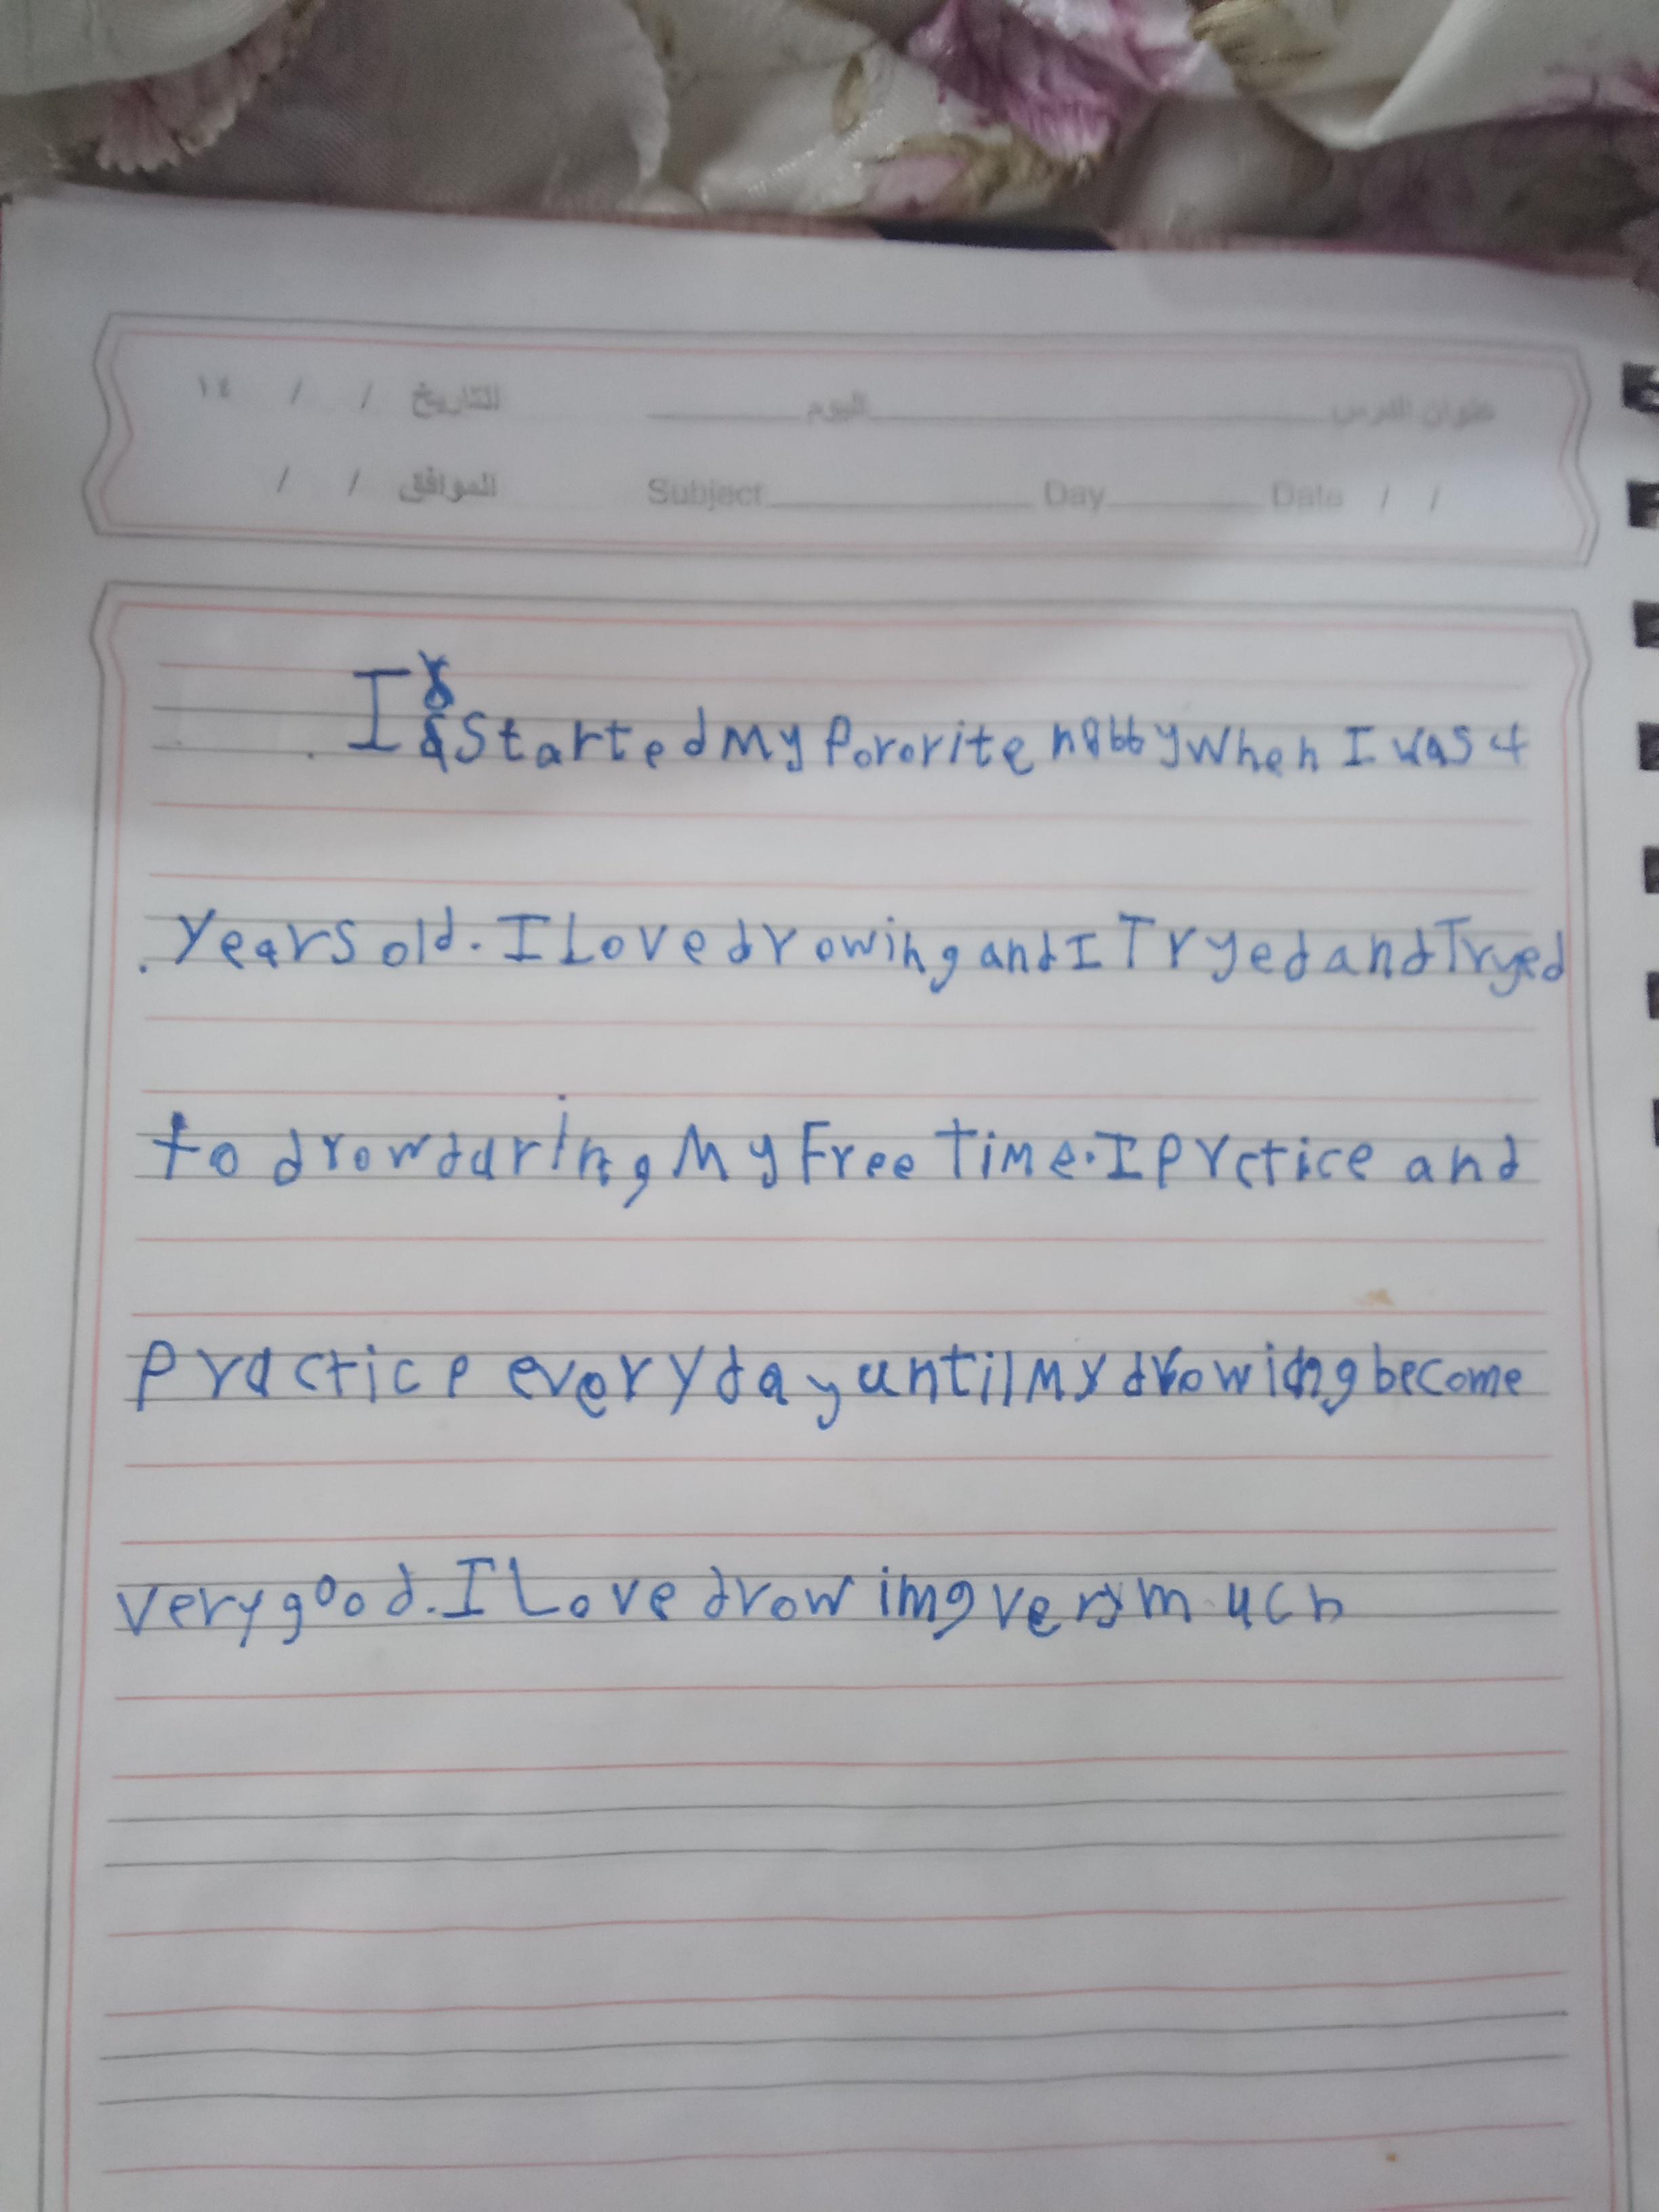 عنوان الدرس اليوم التاريخ / / ١٤
Subject Day Date / / الموافق / /
I Started My Pororite hobby When I was 4
Years old. I Love drowing and I Tryed and Tryed
to drow during My Free Time. I prctice and
Practice every day until My drowing become
very good. I Love drowimg very much